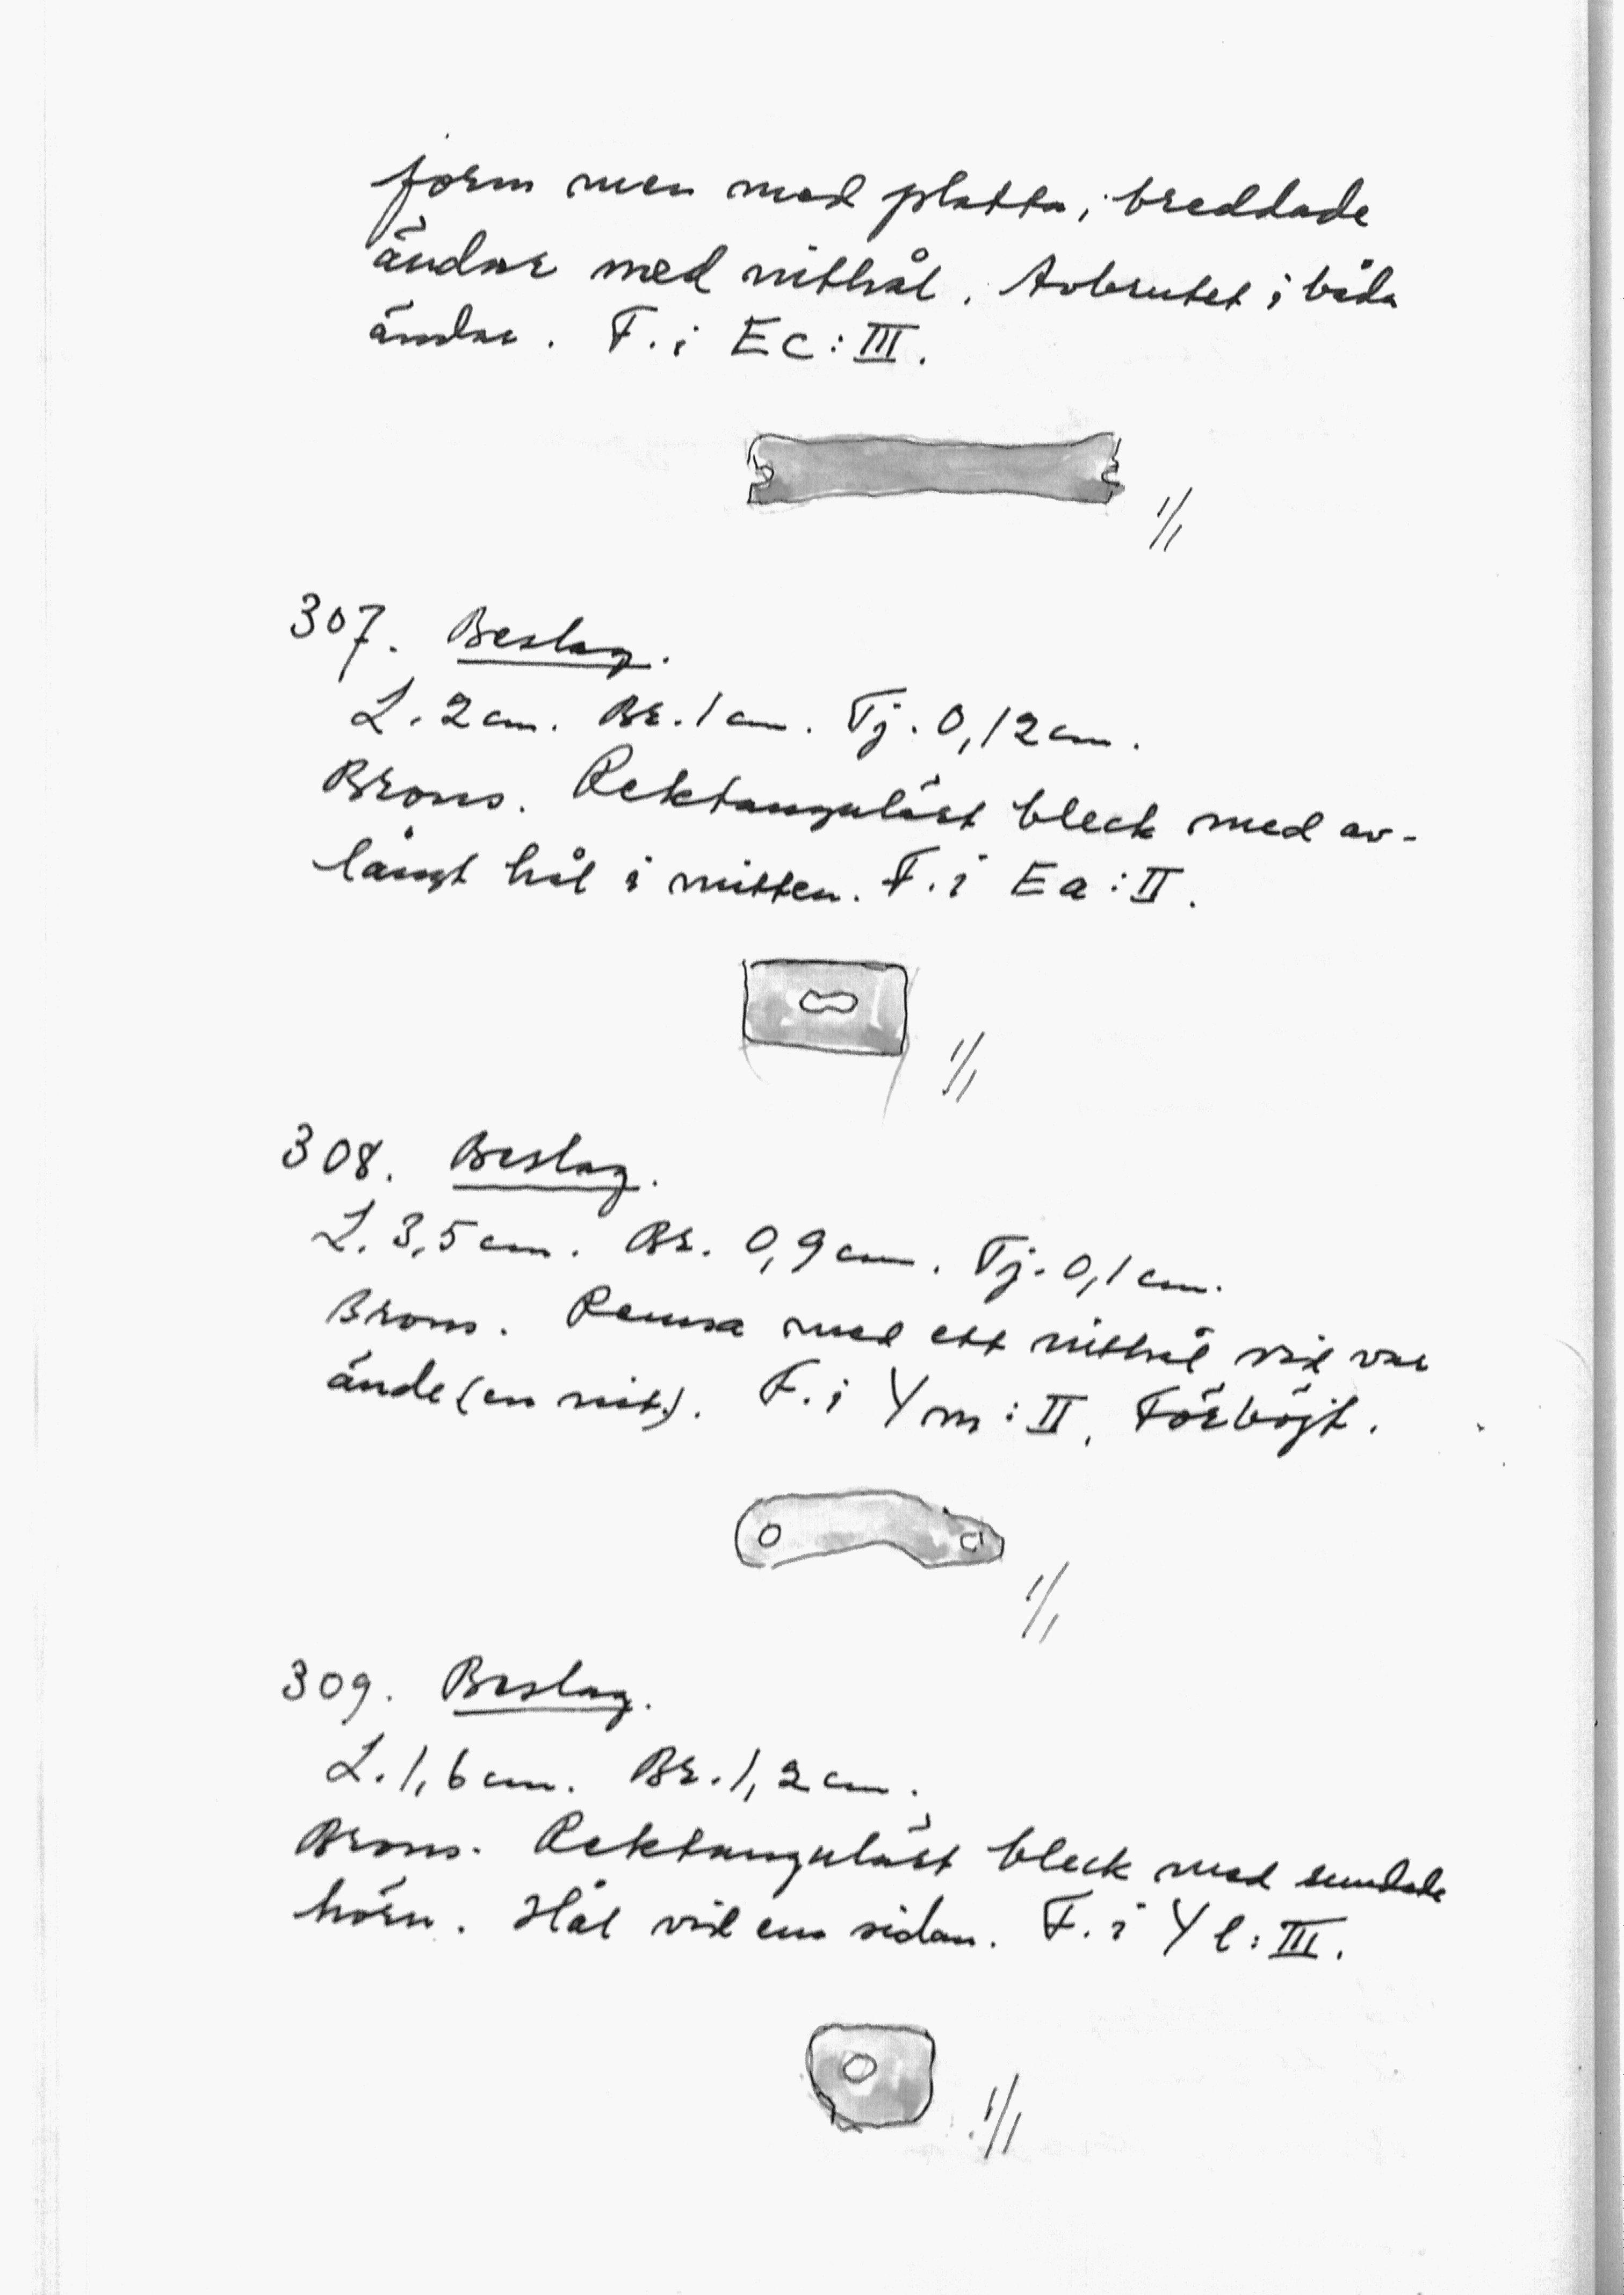 form men med platta, breddade
ändar med nithål. Avbrutet i båda
ändar. F. i Ec:III.
1/1
307. Beslag.
L. 2 cm. Br. 1 cm. Tj. 0,12 cm.
Brons. Rektangulärt bleck med av-
långt hål i mitten. F. i Ea:II.
1/1
308. Beslag.
L. 3,5 cm. Br. 0,9 cm. Tj. 0,1 cm.
Brons. Remsa med ett nithål vid var
ände (en nit). F. i Ym:II. Förböjt.
1/1
309. Beslag.
L. 1,6 cm. Br. 1,2 cm.
Brons. Rektangulärt bleck med rundade
hörn. Hål vid ena sidan. F. i Yl:III.
1/1